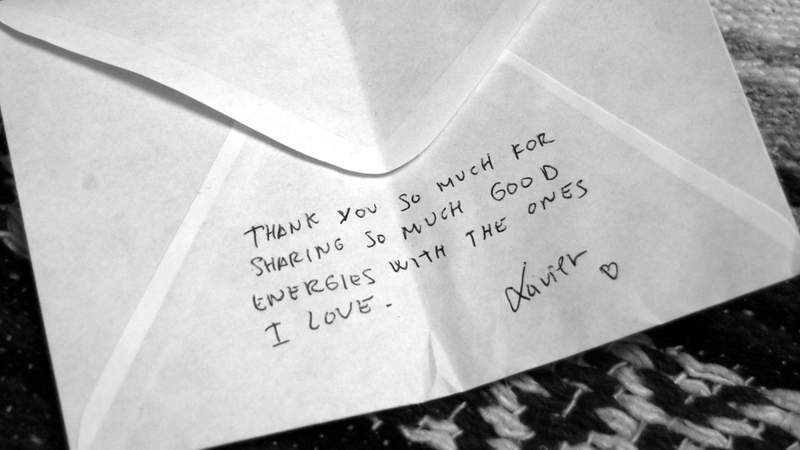 THANK YOU SO MUCH FOR
SHARING SO MUCH GOOD
ENERGIES WITH THE ONES
I LOVE.
Xavier ♡